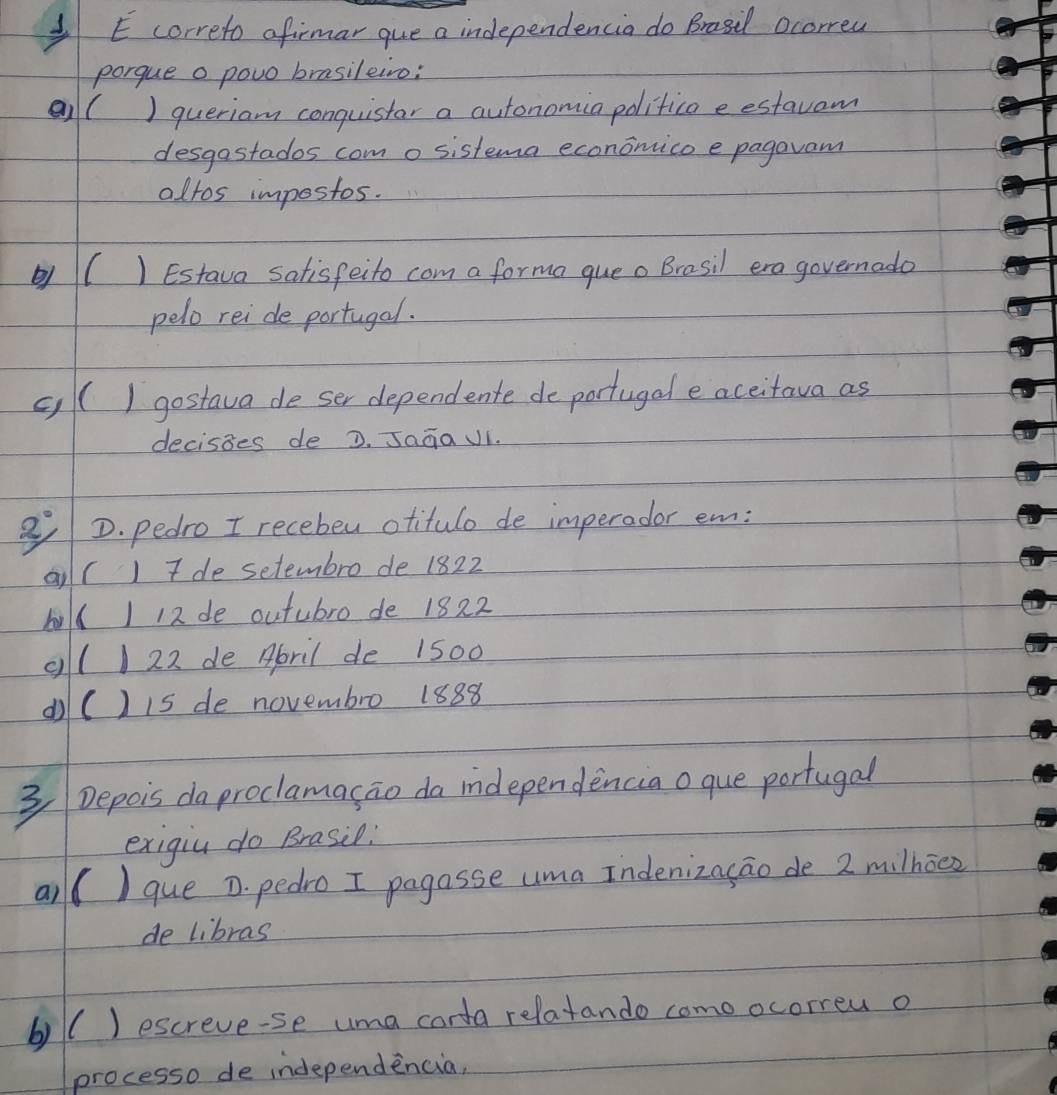 1 É correto afirmar que a independencia do Brasil ocorreu
porque o povo brasileiro:
a) ( ) queriam conquistar a autonomia politica e estavam
desgastados com o sistema econômico e pagavam
altos impostos.
b) ( ) Estava satisfeito com a forma que o Brasil era governado
pelo rei de portugal.
c) ( ) gostava de ser dependente de portugal e aceitava as
decisões de D. Joãa VI.
2º D. pedro I recebeu o titulo de imperador em:
a) ( ) 7 de setembro de 1822
b) ( ) 12 de outubro de 1822
c) ( ) 22 de Abril de 1500
d) ( ) 15 de novembro 1888
3 Depois da proclamação da independência o que portugal
exigiu do Brasil:
a) ( ) que D. pedro I pagasse uma Indenização de 2 milhões
de libras
b) ( ) escreve-se uma carta relatando como ocorreu o
processo de independência,